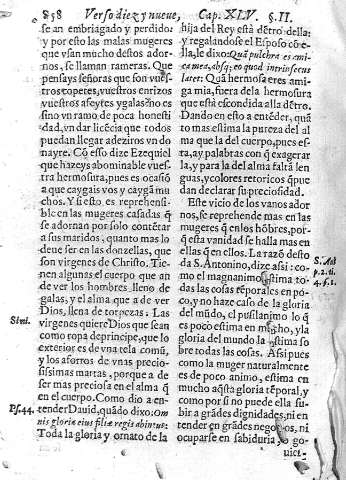 858 Verso diez y nueue, Cap. XLV. §. II.
se an embriagado y perdido:
y por esto las malas mugeres
que vsan mucho destos ador-
nos, se llaman rameras. Que
pensays señoras que son vues-
tros copetes, vuestros enrizos
vuestros afeytes y galas? no es
sino vn ramo de poca honesti
dad, vn dar licēcia que todos
puedan llegar adeziros vn do
nayre. Cō esso dize Ezequiel
que hazeys abominable vues-
tra hermosura, pues es ocasiō
a que caygais vos y caygā mu
chos. Y si esto es reprehensi-
ble en las mugeres casadas q̄
se adornan por solo contētar
a sus maridos, quanto mas lo
deue ser en las donzellas, que
son virgenes de Christo. Tie-
nen algunas el cuerpo que an
de ver los hombres lleno de
galas, y el alma que a de ver
Dios, llena de torpezas. Las
Simi.
virgenes quiere Dios que seān
como ropa de principe, que lo
exterior es de vna tela comū,
y los aforros de vnas precio-
sissimas martas, porque a de
ser mas preciosa en el alma q̄
en el cuerpo. Como dio a en-
Ps. 44.
tender Dauid, quādo dixo: Om
nis gloria eius filiæ regis abintus:
Toda la gloria y ornato de la
hija del Rey està dētro della:
y regalandose el Esposo cō e-
lla, le dixo: Quā pulchra es ami
ca mea, absq; eo quod intrinsecus
latet: Quā hermosa eres ami-
ga mia, fuera dela hermosura
que está escondida alla dētro.
Dando en esto a entēder, quā
to mas estima la pureza del al
ma que la del cuerpo, pues es-
ta, ay palabras con q̄ exagerar
la, y para la del alma faltā len
guas, y colores retoricos q̄ pue
dan declarar su preciosidad.
Este vicio de los vanos ador
nos, se reprehende mas en las
mugeres q̄ en los hōbres, por-
q̄ esta vanidad se halla mas en
ellas q̄ en ellos. La razō desto
da S. Antonino, dize assi: co-
S. Ant
p. 2. ti.
4. §. 1.
mo el magnanimo estima to-
das las cosas tēporales en po-
co, y no haze caso de la gloria
del mūdo, el pusilanimo lo q̄
es poco estima en mucho, y la
gloria del mundo la estima so
bre todas las cosas. Assi pues
como la muger naturalmente
es de poco animo, estima en
mucho aq̄sta gloria tēporal, y
como por si no puede ella su-
bir a grādes dignidades, ni en
tender en grādes negocios, ni
ocuparse en sabiduria, ni go
uier-